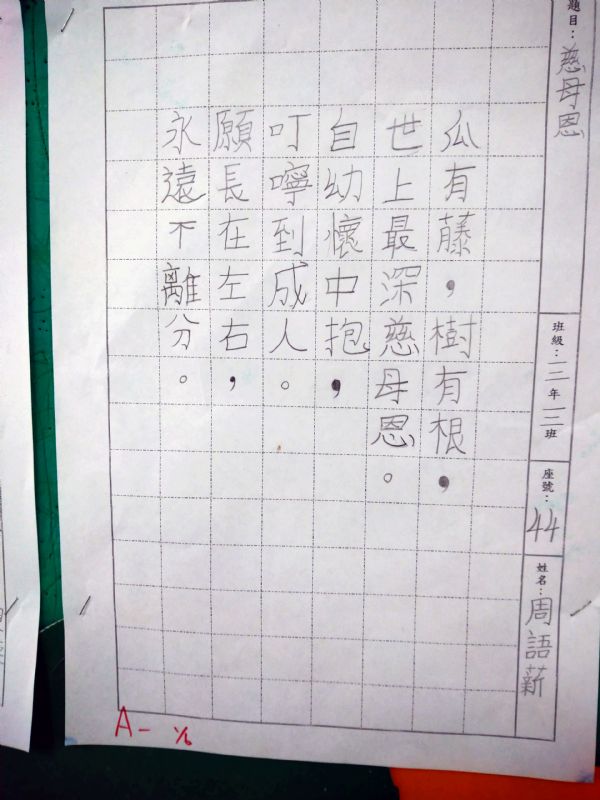 題目：慈母恩
班級：三年三班
座號：44
姓名：周語薪
瓜有藤，樹有根，
世上最深慈母恩。
自幼懷中抱，
叮嚀到成人。
願長在左右，
永遠不離分。
A- 1/6